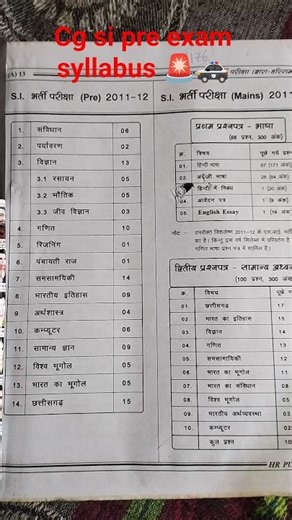 Cg si pre exam
syllabus 🚨🚓
परीक्षा
S.I. भर्ती परीक्षा (Pre) 2011-12
1. संविधान 06
2. पर्यावरण 02
3. विज्ञान 13
3.1 रसायन 05
3.2 भौतिक 05
3.3 जीव विज्ञान 03
4. गणित 10
5. रिजनिंग 01
6. पंचायती राज 01
7. समसामयिकी 14
8. भारतीय इतिहास 09
9. अर्थशास्त्र 04
10. कम्प्यूटर 06
11. सामान्य ज्ञान 09
12. विश्व भूगोल 05
13. भारत का भूगोल 05
14. छत्तीसगढ़ 15
S.I. भर्ती परीक्षा (Mains) 201
प्रथम प्रश्नपत्र - भाषा
(88 प्रश्न, 300 अंक)
क्र. विषय पूछे गये प्रश्न
01. हिन्दी भाषा 57 (171 अंक)
02. अंग्रेजी भाषा 28 (84 अंक)
हिन्दी में निबंध 1 (20 अंक)
04. आवेदन पत्र 1 (9 अंक)
05. English Essay 1 (16 अंक)
द्वितीय प्रश्नपत्र - सामान्य अध्य
(100 प्रश्न, 300 अंक
क्र. विषय पूछे ग
01. छत्तीसगढ़ 17
02. भारत का इतिहास 15
03. विज्ञान 14
04. गणित 13
05. समसामयिकी 12
06. भारत का भूगोल 11
07. भारत का संविधान 08
08. विश्व भूगोल 05
09. भारतीय अर्थव्यवस्था 03
10. कम्प्यूटर 02
कुल प्रश्न 10
HR PU